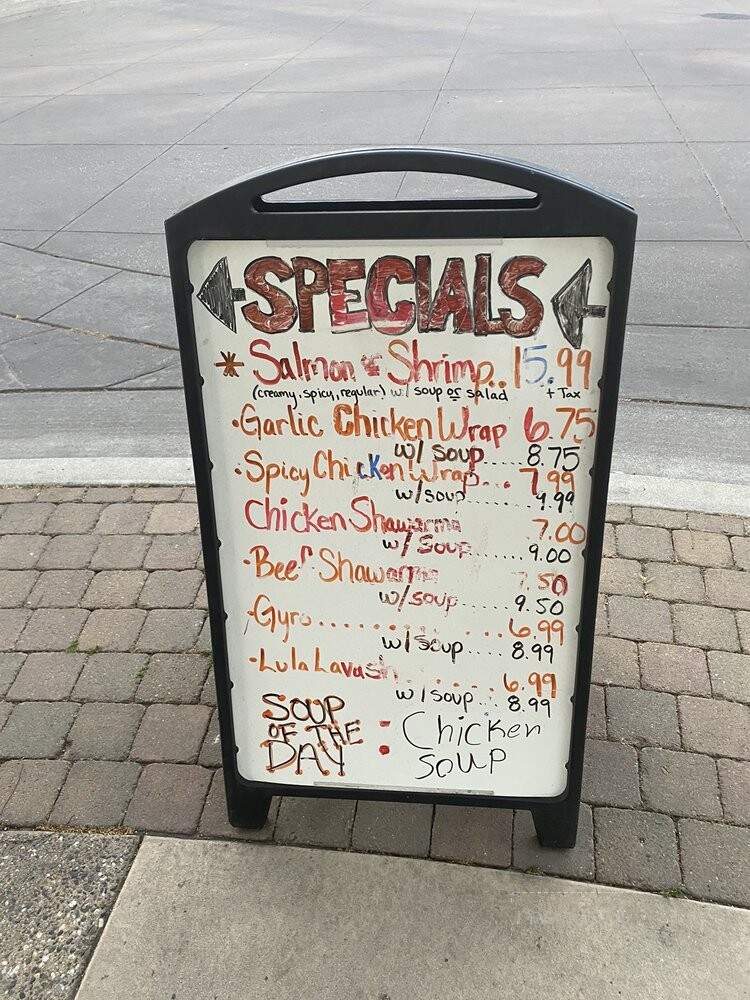 SPECIALS
* Salmon & Shrimp.. 15.99
(creamy, spicy, regular) w/ soup or salad + Tax
·Garlic Chicken Wrap 6.75
w/ soup.....8.75
·Spicy Chicken Wrap... 7.99
w/soup.........9.99
Chicken Shawarma 7.00
w/ Soup........9.00
·Beef Shawarma 7.50
w/soup........9.50
·Gyro..............6.99
w/soup.....8.99
·Lula Lavash.........6.99
w/soup...8.99
SOUP OF THE DAY : Chicken Soup